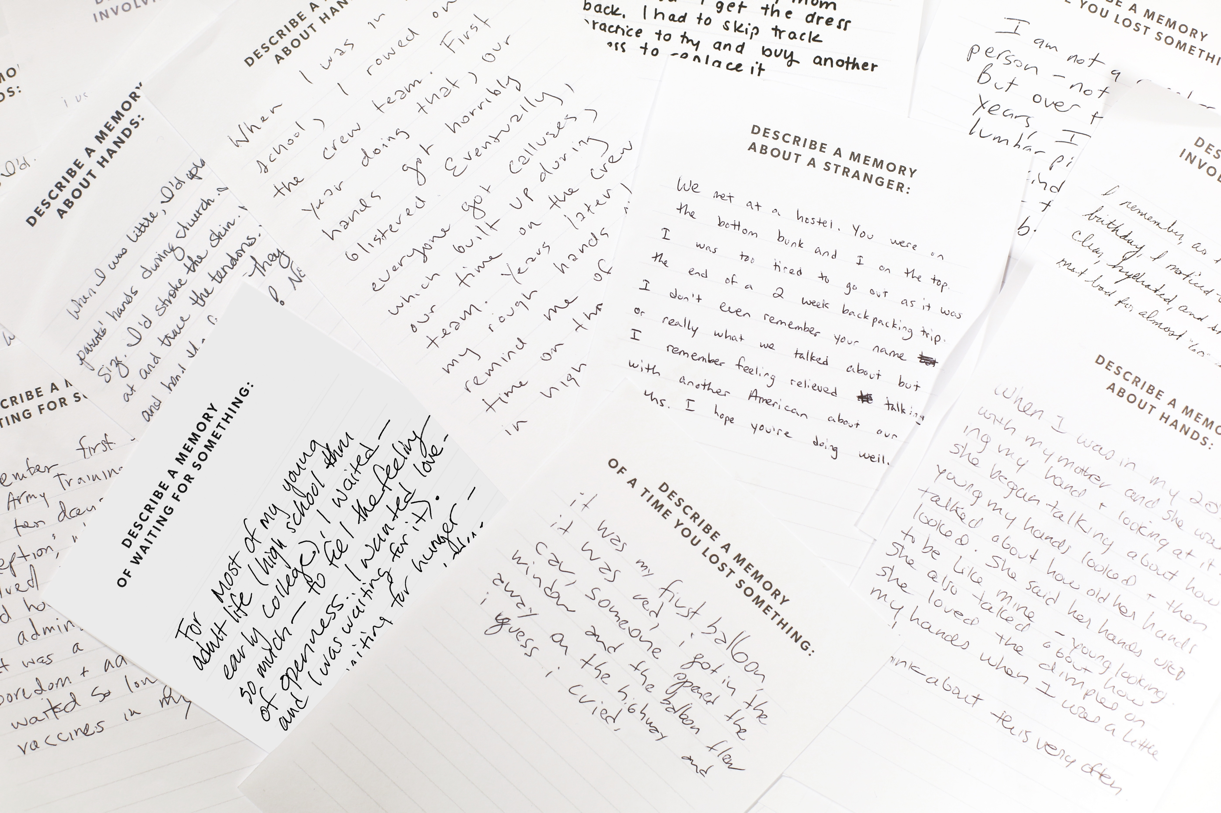 INVOLV
DESCRIBE A MEMORY
ABOUT HANDS:
When I was little, I'd
parents' hands during church.
I'd stroke the skin.
at and trace the tendons.
They
and
DESCRIBE A
ABOUT HAN
When I was in
school, I rowed on
the crew team. First
year doing that, our
hands got horribly
blistered. Eventually,
everyone got calluses,
which built up during
our time on the crew
team. Years later,
my rough hands
remind me of
time on the
in high
get the dress
back. I had to skip track
practice to try and buy another
to replace it
DESCRIBE A MEMORY
ABOUT A STRANGER:
We met at a hostel. You were on
the bottom bunk and I on the top.
I was too tired to go out as it was
the end of a 2 week backpacking trip.
I don't even remember your name
or really what we talked about but
I remember feeling relieved talking
with another American about our
I hope you're doing well.
A MEMORY
YOU LOST SOMETHIN
I am not a
person - not
But over
years, I
DES
INVOL
I remember, as
birthday, I noticed
clean, hydrated, and
for almost
DESCRIBE A MEMO
ABOUT HANDS:
When I was in my 20
with my mother and she was
ing my hand + looking at it
she began talking about how
young my hands looked + then
talked about how old her hands
looked. She said her hands used
to be like mine - young looking.
She also talked about how
she loved the dimples on
my hands when I was a little
about this very often
CRIBE A
TING FOR S
ember first
Army Training
eption,
admin
t was a
oredom +
waited so lon
vaccines in my
DESCRIBE A MEMORY
OF WAITING FOR SOMETHING:
For most of my young
adult life (high school
early college), I waited —
so much — to feel the feeling
of openness. I wanted love-
and I was waiting for it).
for hunger —
DESCRIBE A MEMORY
OF A TIME YOU LOST SOMETHING:
it was my first balloon,
it was red, i got in the
car, someone opened the
window and the balloon flew
away on the highway and
i guess i cried,